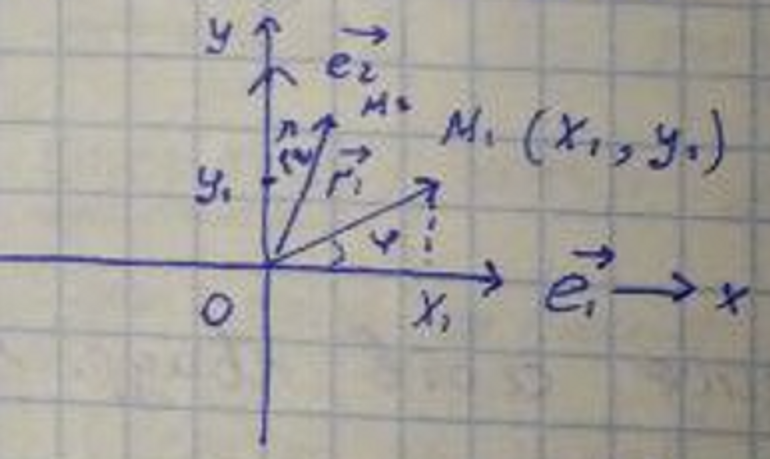 y
e₂
M₂
M₁ (x₁, y₁)
y₁
r₁
φ
O
x₁
e₁
x